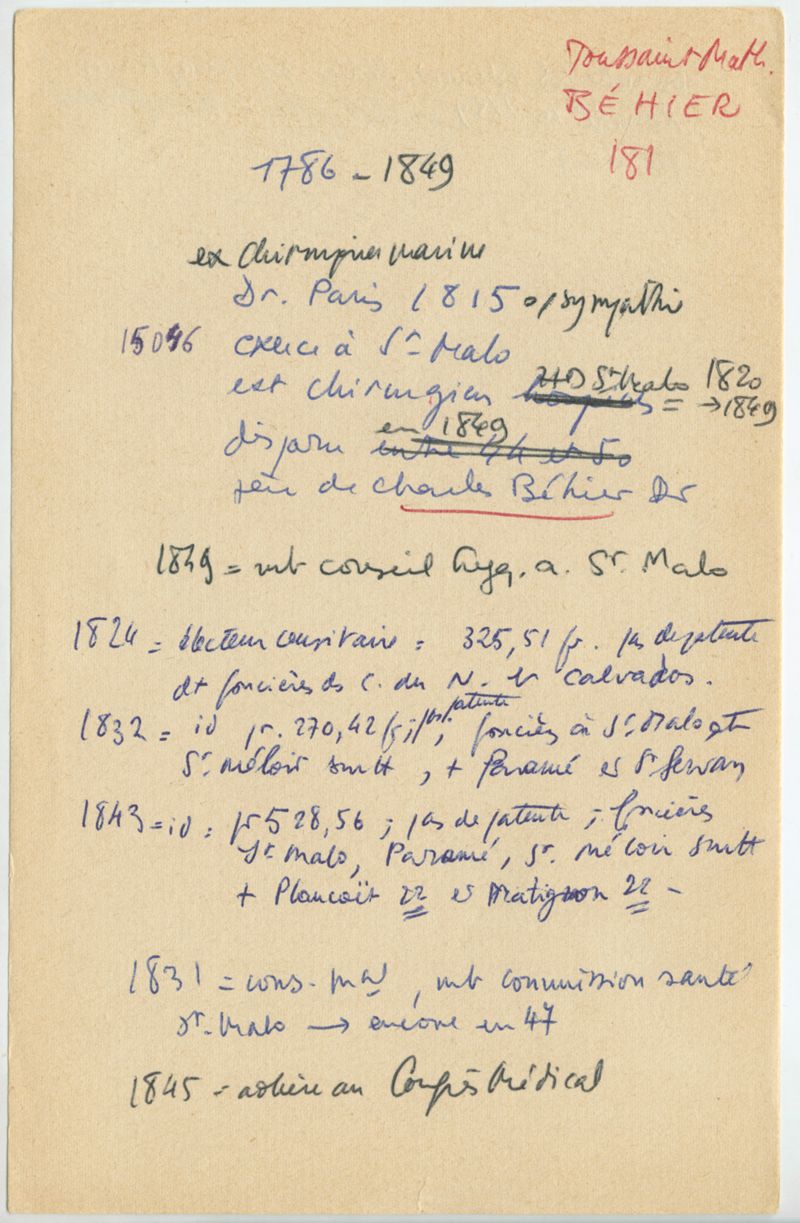 Toussaint Math.
BÉHIER
181
1786 - 1849
ex chirurgien marine
Dr. Paris 1815 o/sympathie
15046 exerce à St Malo
est chirurgien HD St Malo 1820
= → 1849
disparu en 1849 entre 44 et 50
père de Charles Béhier Dr
1849 = mb conseil hyg. a. St. Malo
1824 = électeur censitaire = 325,51 fr. pas de patente
dt foncières ds C. du N. et Calvados.
1832 = id pr. 270,42 fr; pas patente, foncières à St Malo et
St. Méloir , + Paramé et St Servan
1843 = id = pr 528,56 ; pas de patente ; foncières
St Malo, Paramé, St. Méloir
+ Plancoët 22 et Matignon 22 -
1831 = cons. mal , mb commission santé
St. Malo → encore en 47
1845 = adhère au Congrès Médical